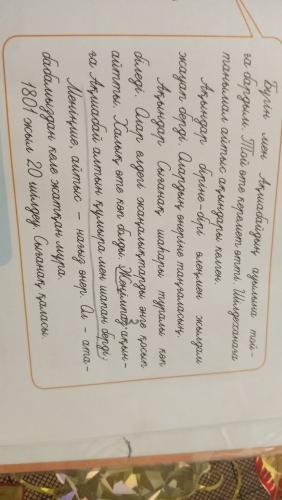 Бүгін мен Ақшабайдың ауылына той-
ға бардым. Той өте керемет өтті. Шілдеханаға
танымал айтыс ақындары келген.
Ақындар біріне-бірі өлеңмен жылдам
жауап берді. Олардың өнеріне таңғаласың.
Ақындар Сығанақ шаһары туралы көп
біледі. Олар елдегі жаңалықтарды әнге қосып
айтты. Халық өте көп болды. Жеңімпаз ақын-
ға Ақшабай алтын құмыра мен шапан берді.
Меніңше, айтыс – нағыз өнер. Ол – ата-
бабамыздан келе жатқан мұра.
1801 жыл 20 шілдеу. Сығанақ қаласы.